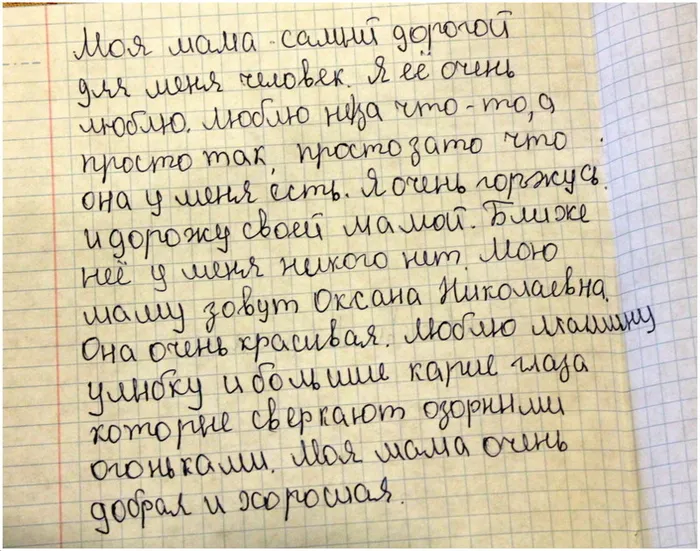 Моя мама - самый дорогой
для меня человек. Я её очень
люблю. Люблю не за что-то, а
просто так, просто за то что
она у меня есть. Я очень горжусь
и дорожу своей мамой. Ближе
неё у меня никого нет. Мою
маму зовут Оксана Николаевна.
Она очень красивая. Люблю мамину
улыбку и большие карие глаза
которые сверкают озорными
огоньками. Моя мама очень
добрая и хорошая.